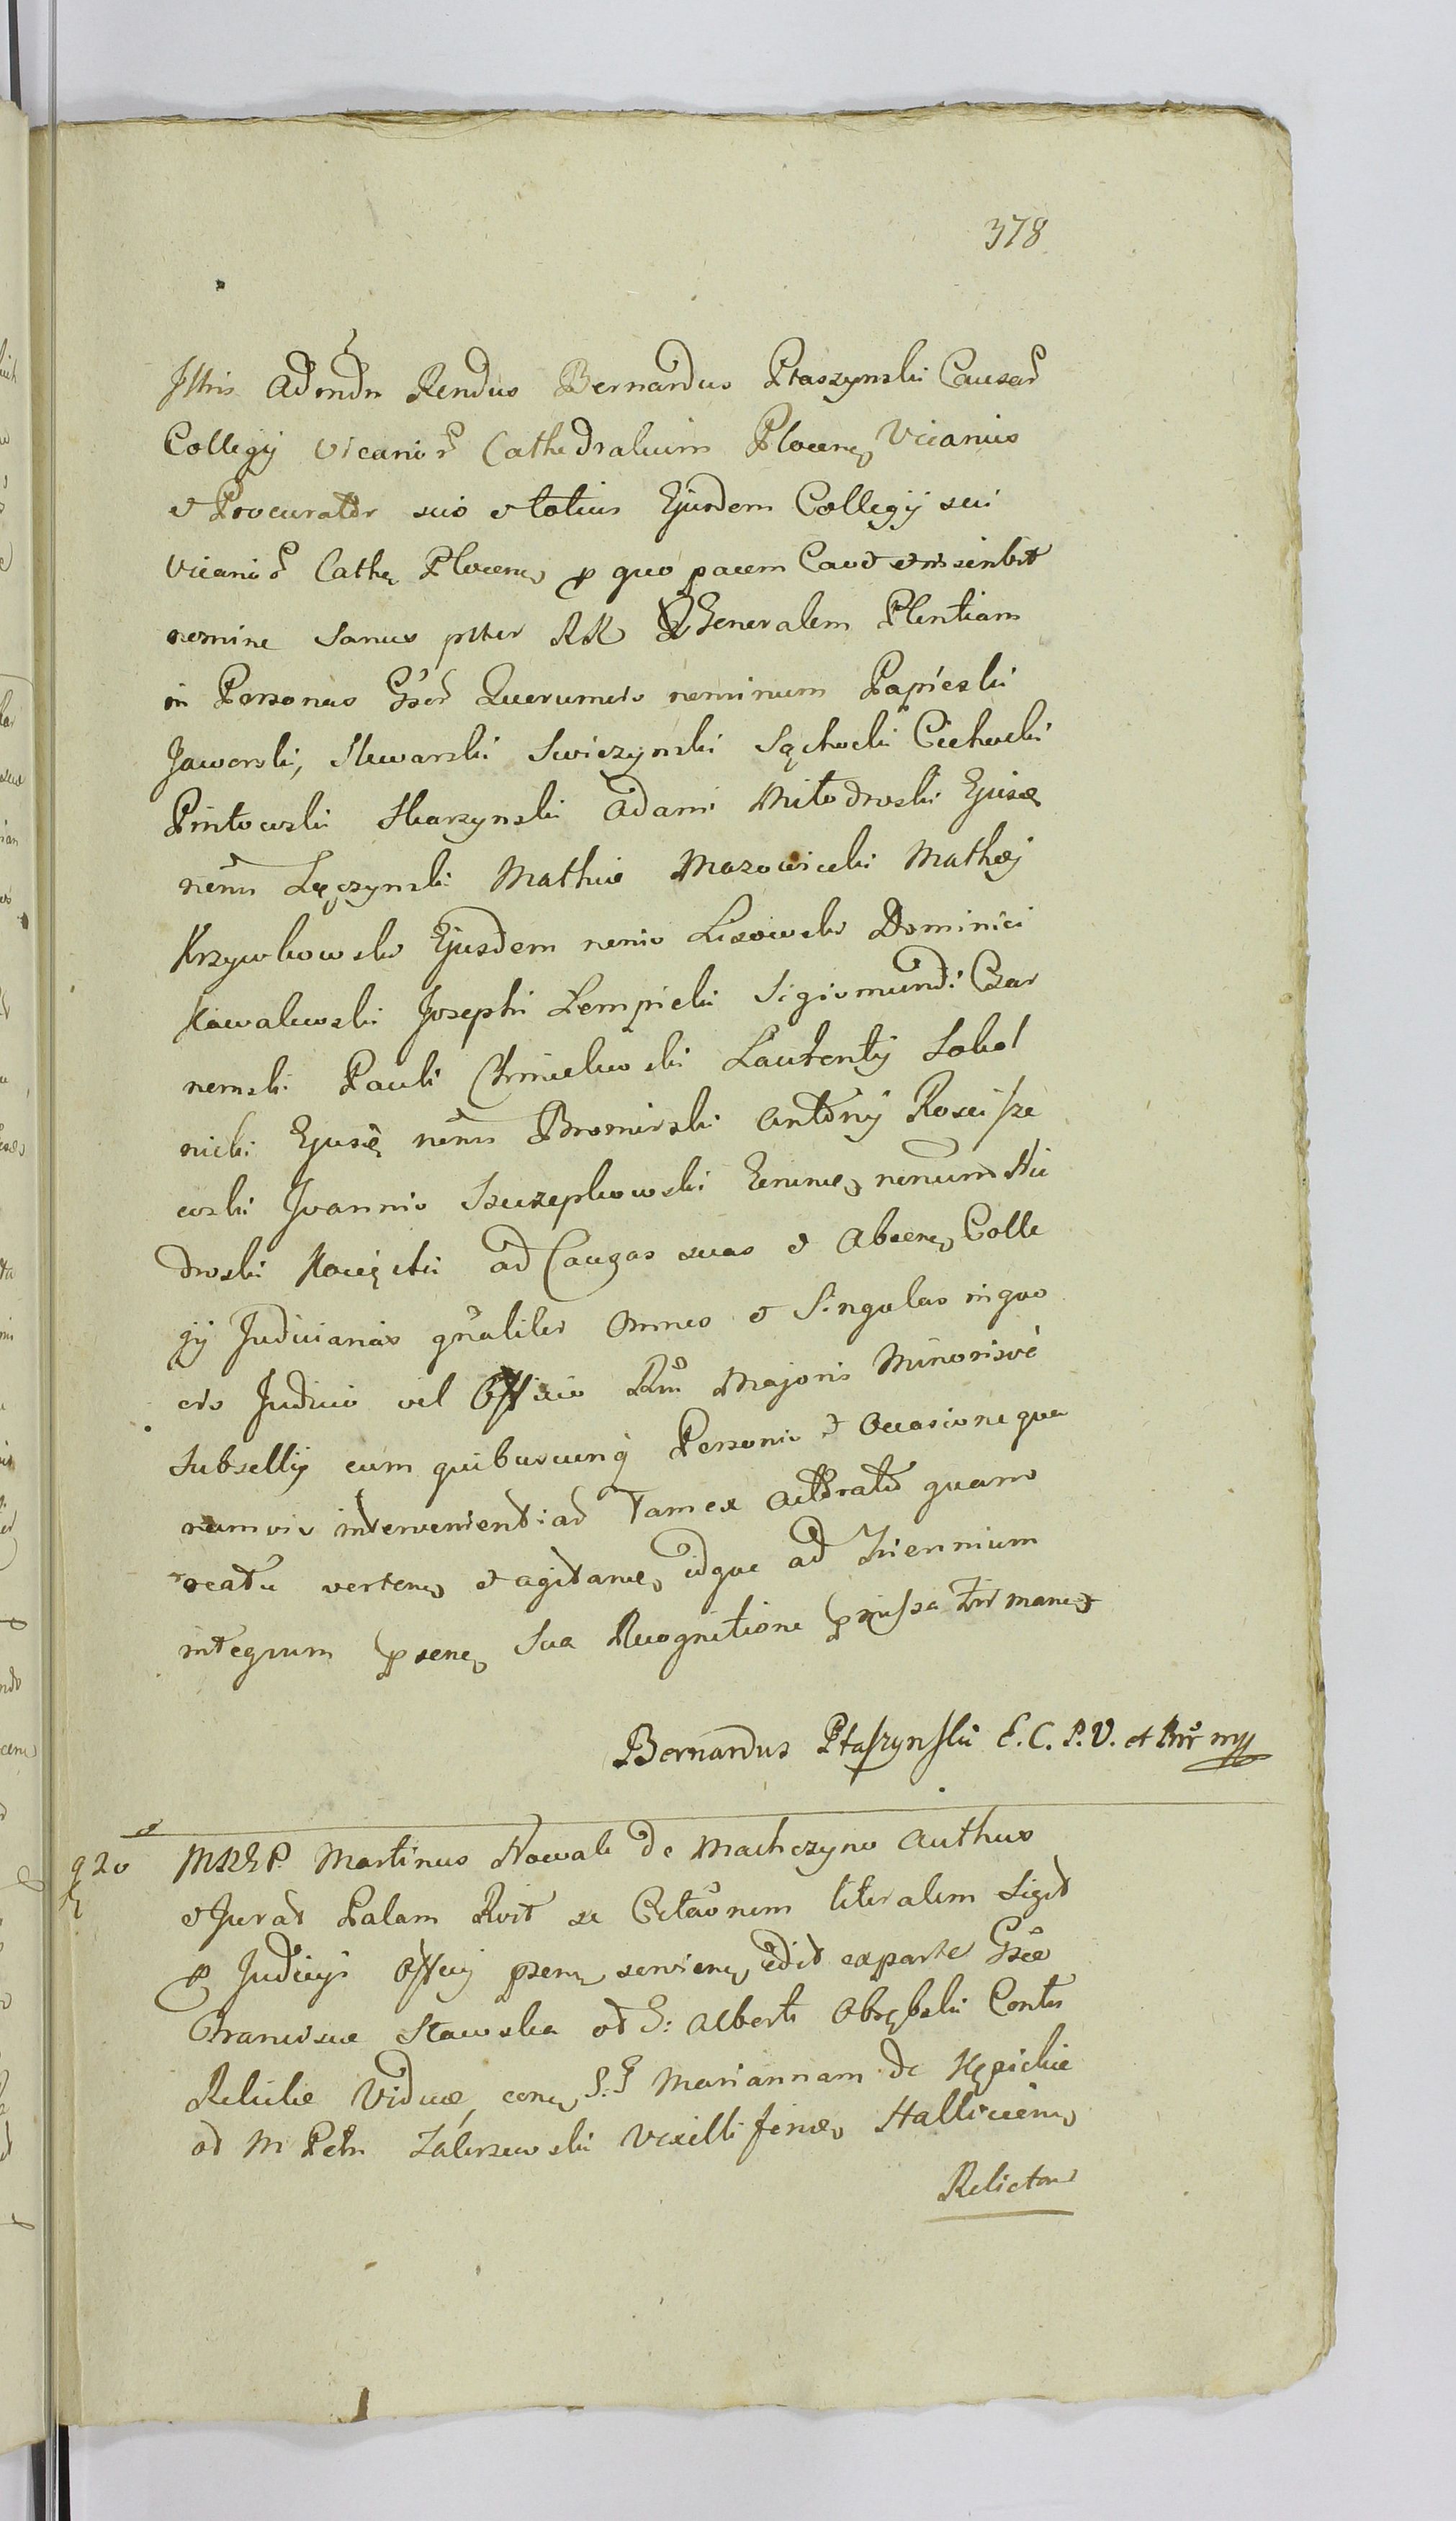 378
Jllris Admdn Rendus Bernardus Ptaszynski Causar
Collegij Vicarior Cathedralium Plocens Vicarius
et Procurator suo et totius Ejusdem Collegij sui
Vicarior Cathe Plocens p quo pacem Cavet et inscribit
nomine Sanus ptter RR Generalem Plentiam
in Personas Gsor Quorumvis neminum Papieski
Jaworski, Sluwarski Swiezynski Sąchocki Ciechocki
Pintowski Skarzynski Adami Miłodroski Ejusd
nemis Łęczynski Mathie Mazowiecki Mathej
Krzywkowski Ejusdem nenis Lisowski Dominici
Kowalewski Josephi Lempicki Sigismundi Czar
nemski Pauli Chmielewski Laurenty Sokol
nicki Ejusd nenis Bromirski Antony Rosciße
wski Joannis Szczepkowski nenum Nie
droski ad Causas suas et Absens Colle
gij Judiciarias gnaliter Omnes et Singulas in quo
vis Judicio vel Officio Rni Majoris Minorisve
Subsellij cum quibuscunq Personis et Occasione qua
rumvis intervenient: ad Tam ex Acttoratu quam
reatu vertens et agitans, idque ad Triennium
integrum psens Sua Recognitione pmißa
Bernardus Ptaßynßki E. C. P. V. et Prr mp
920 MRGP. Martinus Nowak de Machczyno Authus
et Jurat Palam Rvit se Citaonem literalem Sigit
p Judicijs Officij psens serviens edit ex parte Gsae
Franciscae Stawska ad G: Alberti Obrębski Contis
Relictae Viduae, cons G:G Mariannam de Kępickie
ad M Petri Zaborowski Vexilliferidae Halliciens
Relictam